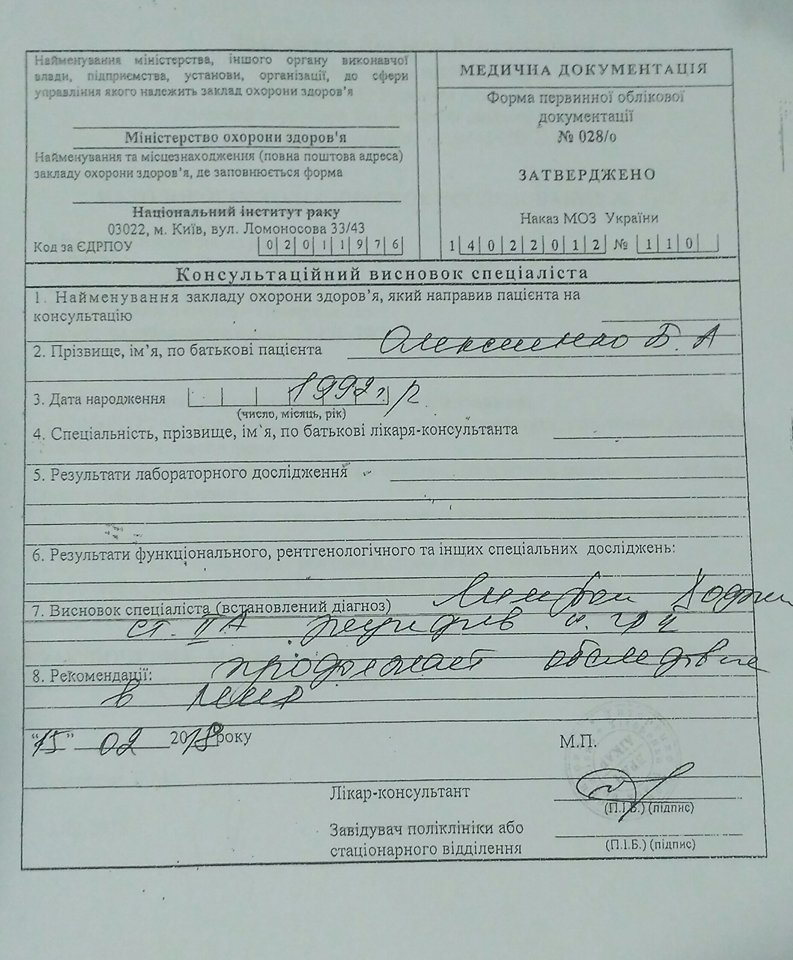 Найменування міністерства, іншого органу виконавчої
влади, підприємства, установи, організації, до сфери
управління якого належить заклад охорони здоров'я
Міністерство охорони здоров'я
Найменування та місцезнаходження (повна поштова адреса)
закладу охорони здоров'я, де заповнюється форма
Національний інститут раку
03022, м. Київ, вул. Ломоносова 33/43
Код за ЄДРПОУ 0 2 0 1 1 9 7 6
МЕДИЧНА ДОКУМЕНТАЦІЯ
Форма первинної облікової
документації
№ 028/о
ЗАТВЕРДЖЕНО
Наказ МОЗ України
1 4 0 2 2 0 1 2 № 1 1 0
Консультаційний висновок спеціаліста
1. Найменування закладу охорони здоров'я, який направив пацієнта на
консультацію
2. Прізвище, ім'я, по батькові пацієнта Б. А
3. Дата народження 1992 г. р
(число, місяць, рік)
4. Спеціальність, прізвище, ім'я, по батькові лікаря-консультанта
5. Результати лабораторного дослідження
6. Результати функціонального, рентгенологічного та інших спеціальних досліджень:
7. Висновок спеціаліста (встановлений діагноз)
ст. II А
8. Рекомендації: продолжает
в
"15" 02 2018 року
М.П.
Лікар-консультант
(П.І.Б.) (підпис)
Завідувач поліклініки або
стаціонарного відділення
(П.І.Б.) (підпис)